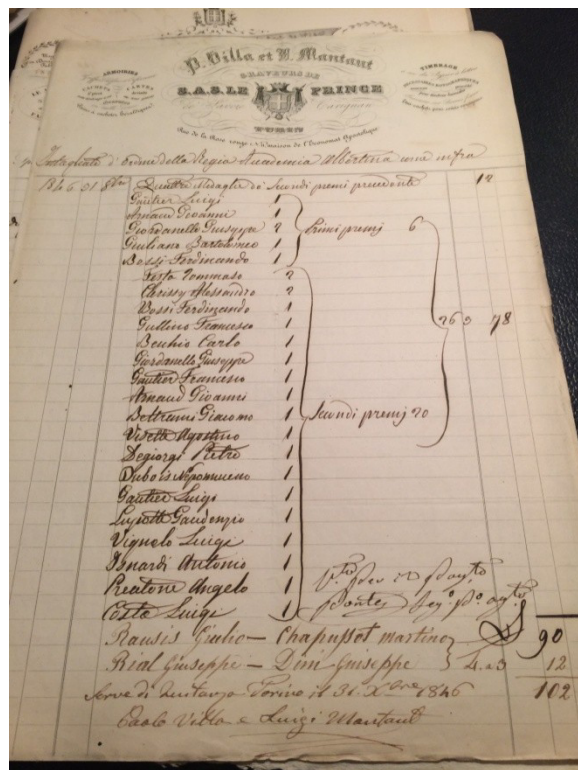 P. Villa et L. Mantaut
GRAVEURS DE
S.A.S. LE PRINCE
de Savoie Carignan
TURIN
ARMOIRIES
CACHETS
CARTES
TIMBRAGE
Intagliato d'ordine della Regia Accademia Albertina come infra
1846 31 Xbre Quattro Medaglie di Secondi premi precedente 12
Gautier Luigi 1
Arnaud Giovanni 1
Giordanello Giuseppe 2 Primi premj 6
Giuliano Bartolomeo 1
Bossi Ferdinando 1
Festa Tommaso 2
Chrissy Alessandro 2
Bossi Ferdinando 1
Gullino Francesco 1 26 3 78
Becchio Carlo 1
Giordanello Giuseppe 1
Gautier Francesco 1
Arnaud Giovanni 1
Beltrami Giacomo 1 Secondi premj 20
Visetti Agostino 1
Degiorgi Pietro 1
Dubois Nepomuceno 1
Gautier Luigi 1
Lupotti Gaudenzio 1
Vignolo Luigi 1
Isnardi Antonio 1
Preatone Angelo 1
Costa Luigi 1
Rausis Giulio — Chapussot Martino 90
Rial Giuseppe — Dini Giuseppe 4. a 3 12
Serve di quitanza Torino il 31 Xbre 1846 102
Paolo Villa e Luigi Mantaut